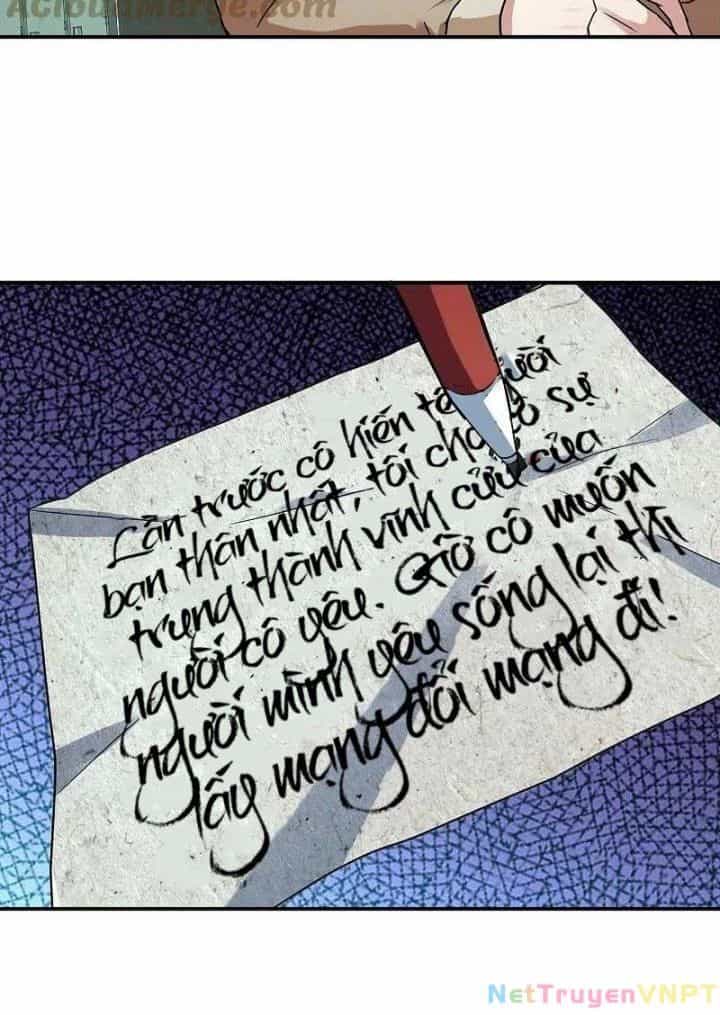 ACloudmerge.com
Lần trước cô hiến tế người
bạn thân nhất, tôi cho cô sự
trung thành vĩnh cửu của
người cô yêu. Giờ cô muốn
người mình yêu sống lại thì
lấy mạng đổi mạng đi!
NetTruyenVNPT